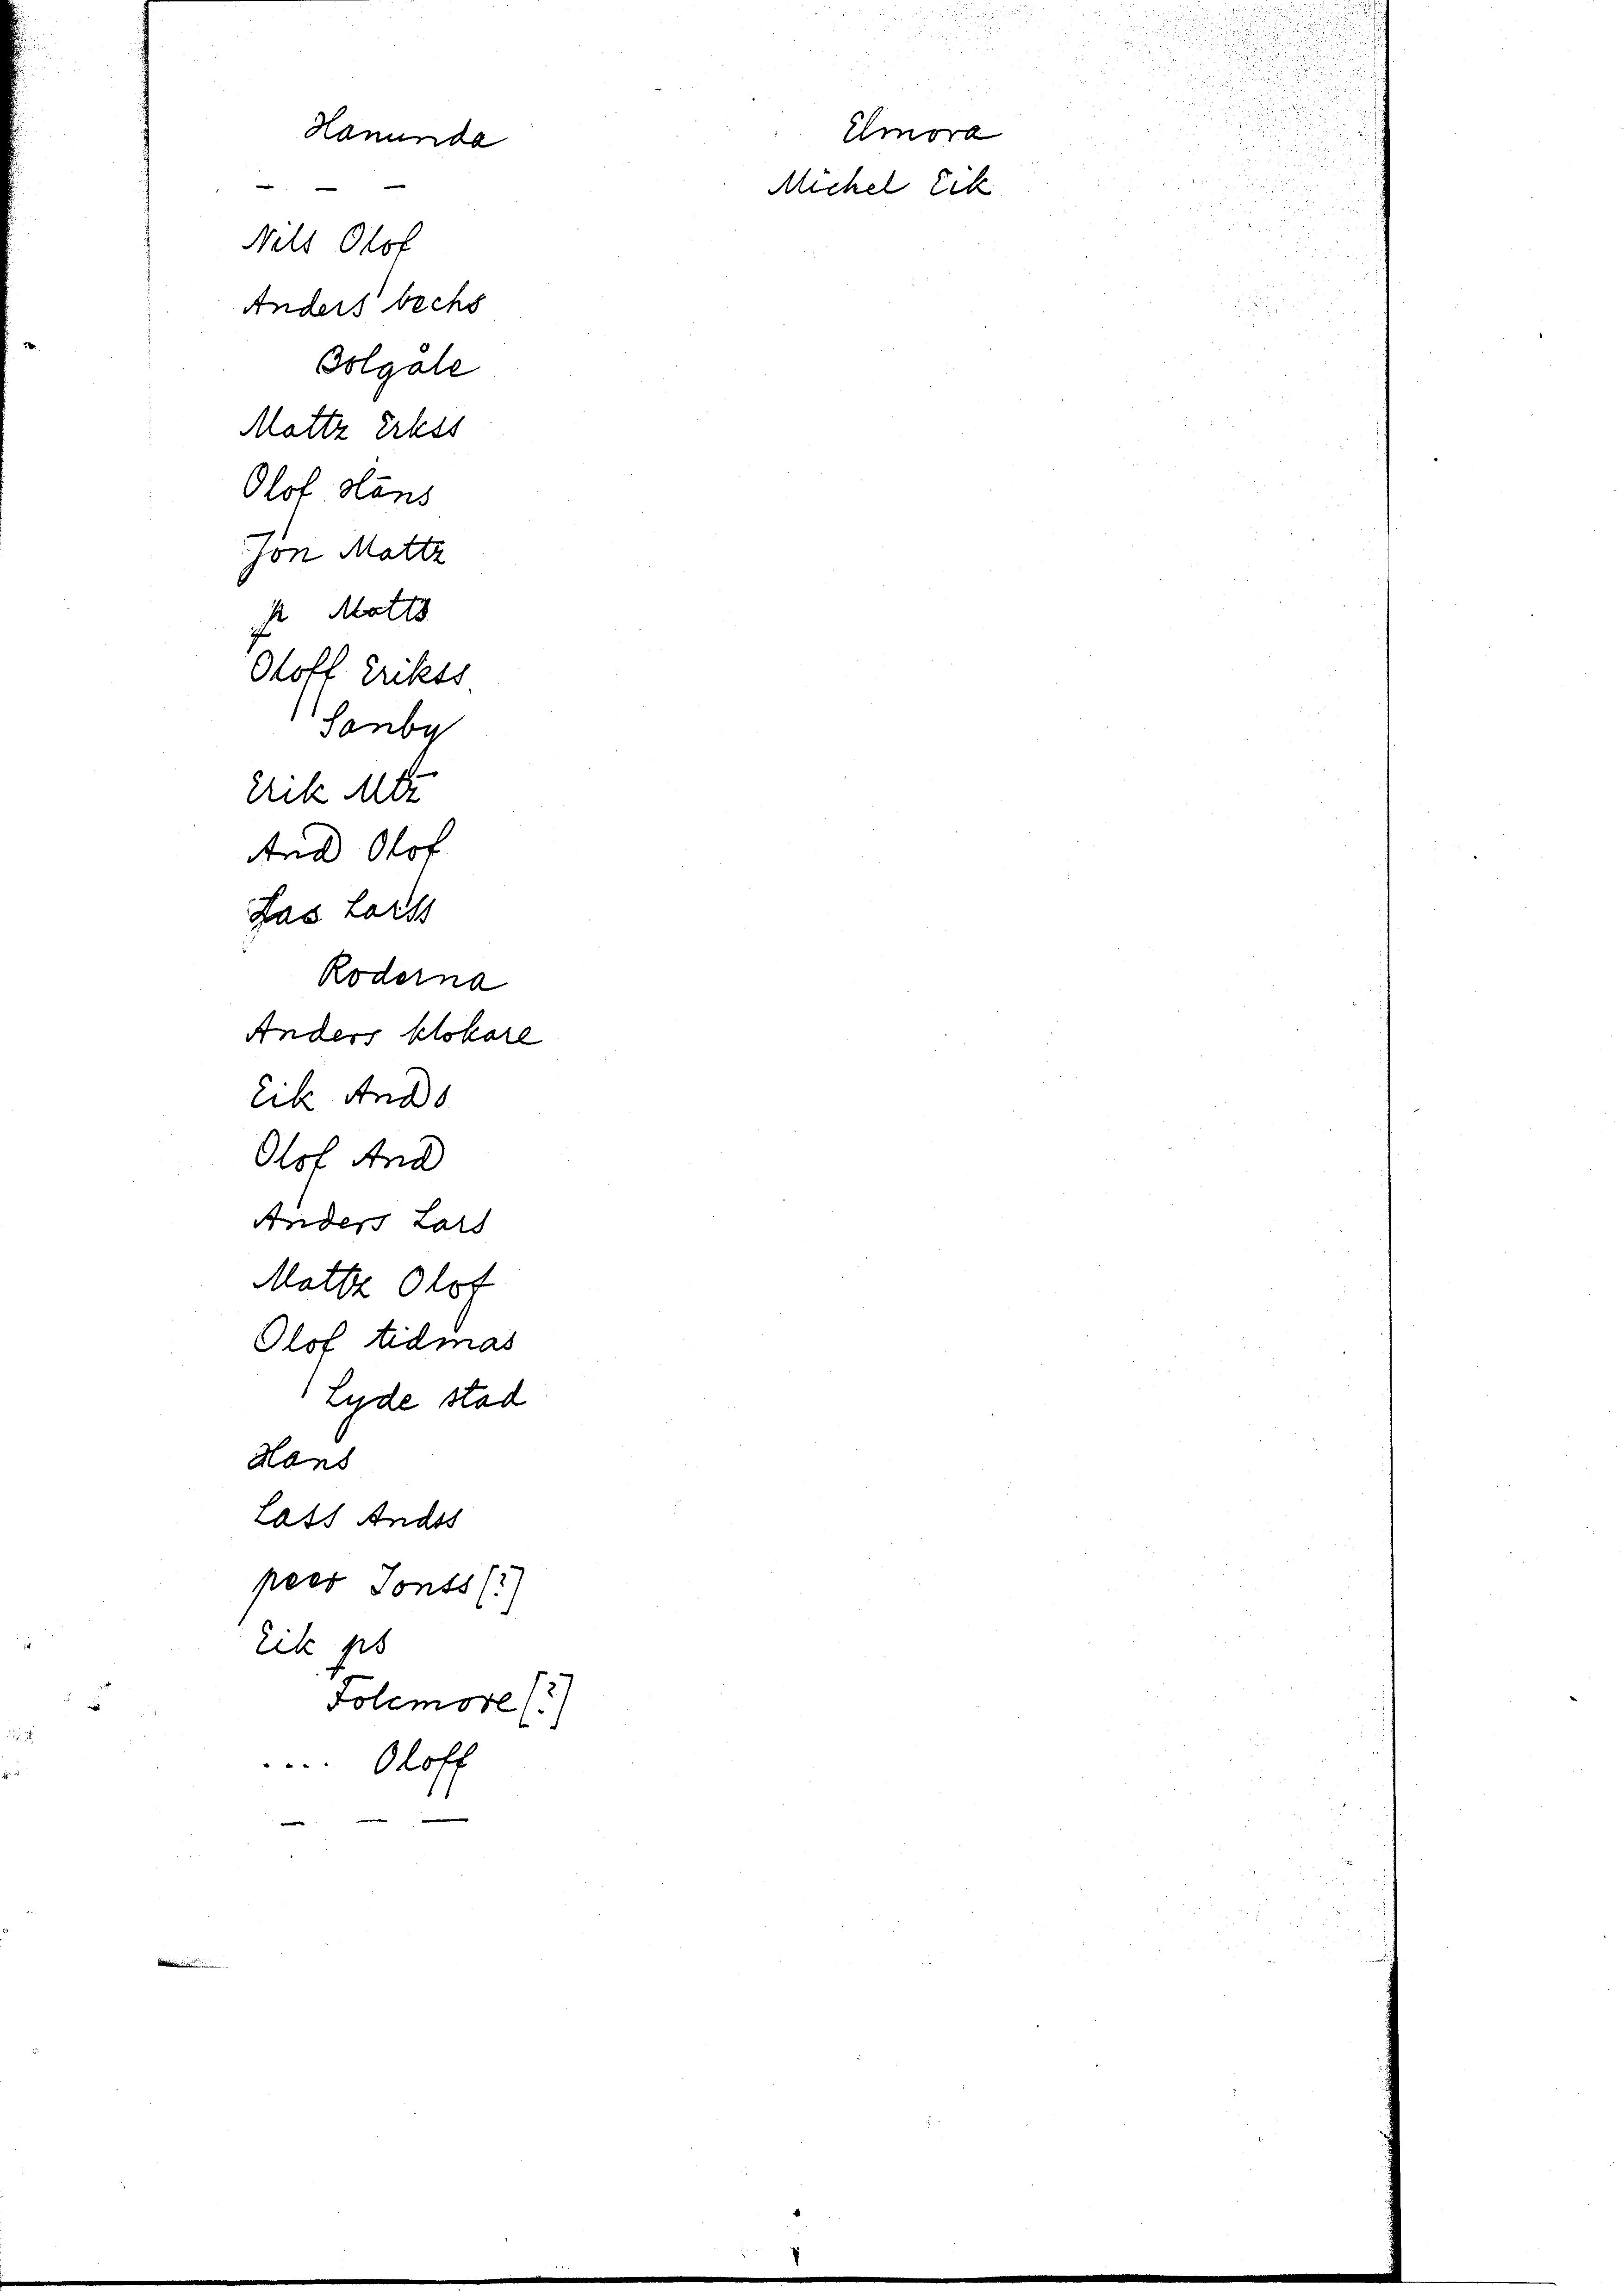 Hanunda
- - -
Nils Olof
Anders bechs
Bolgåle
Mattz Erkss
Olof Hans
Jon Mattz
p Matts
Oloff Erikss
Sanby
Erik Mtz
And Olof
Las Larss
Roderna
Anders klokare
Eik Ands
Olof And
Anders Lars
Mattz Olof
Olof tidmas
Lyde stad
Hans
Lass Andss
peer Jonss (?)
Eik ps
Folcmore (?)
.... Oloff
- - -
Elmora
Michel Eik